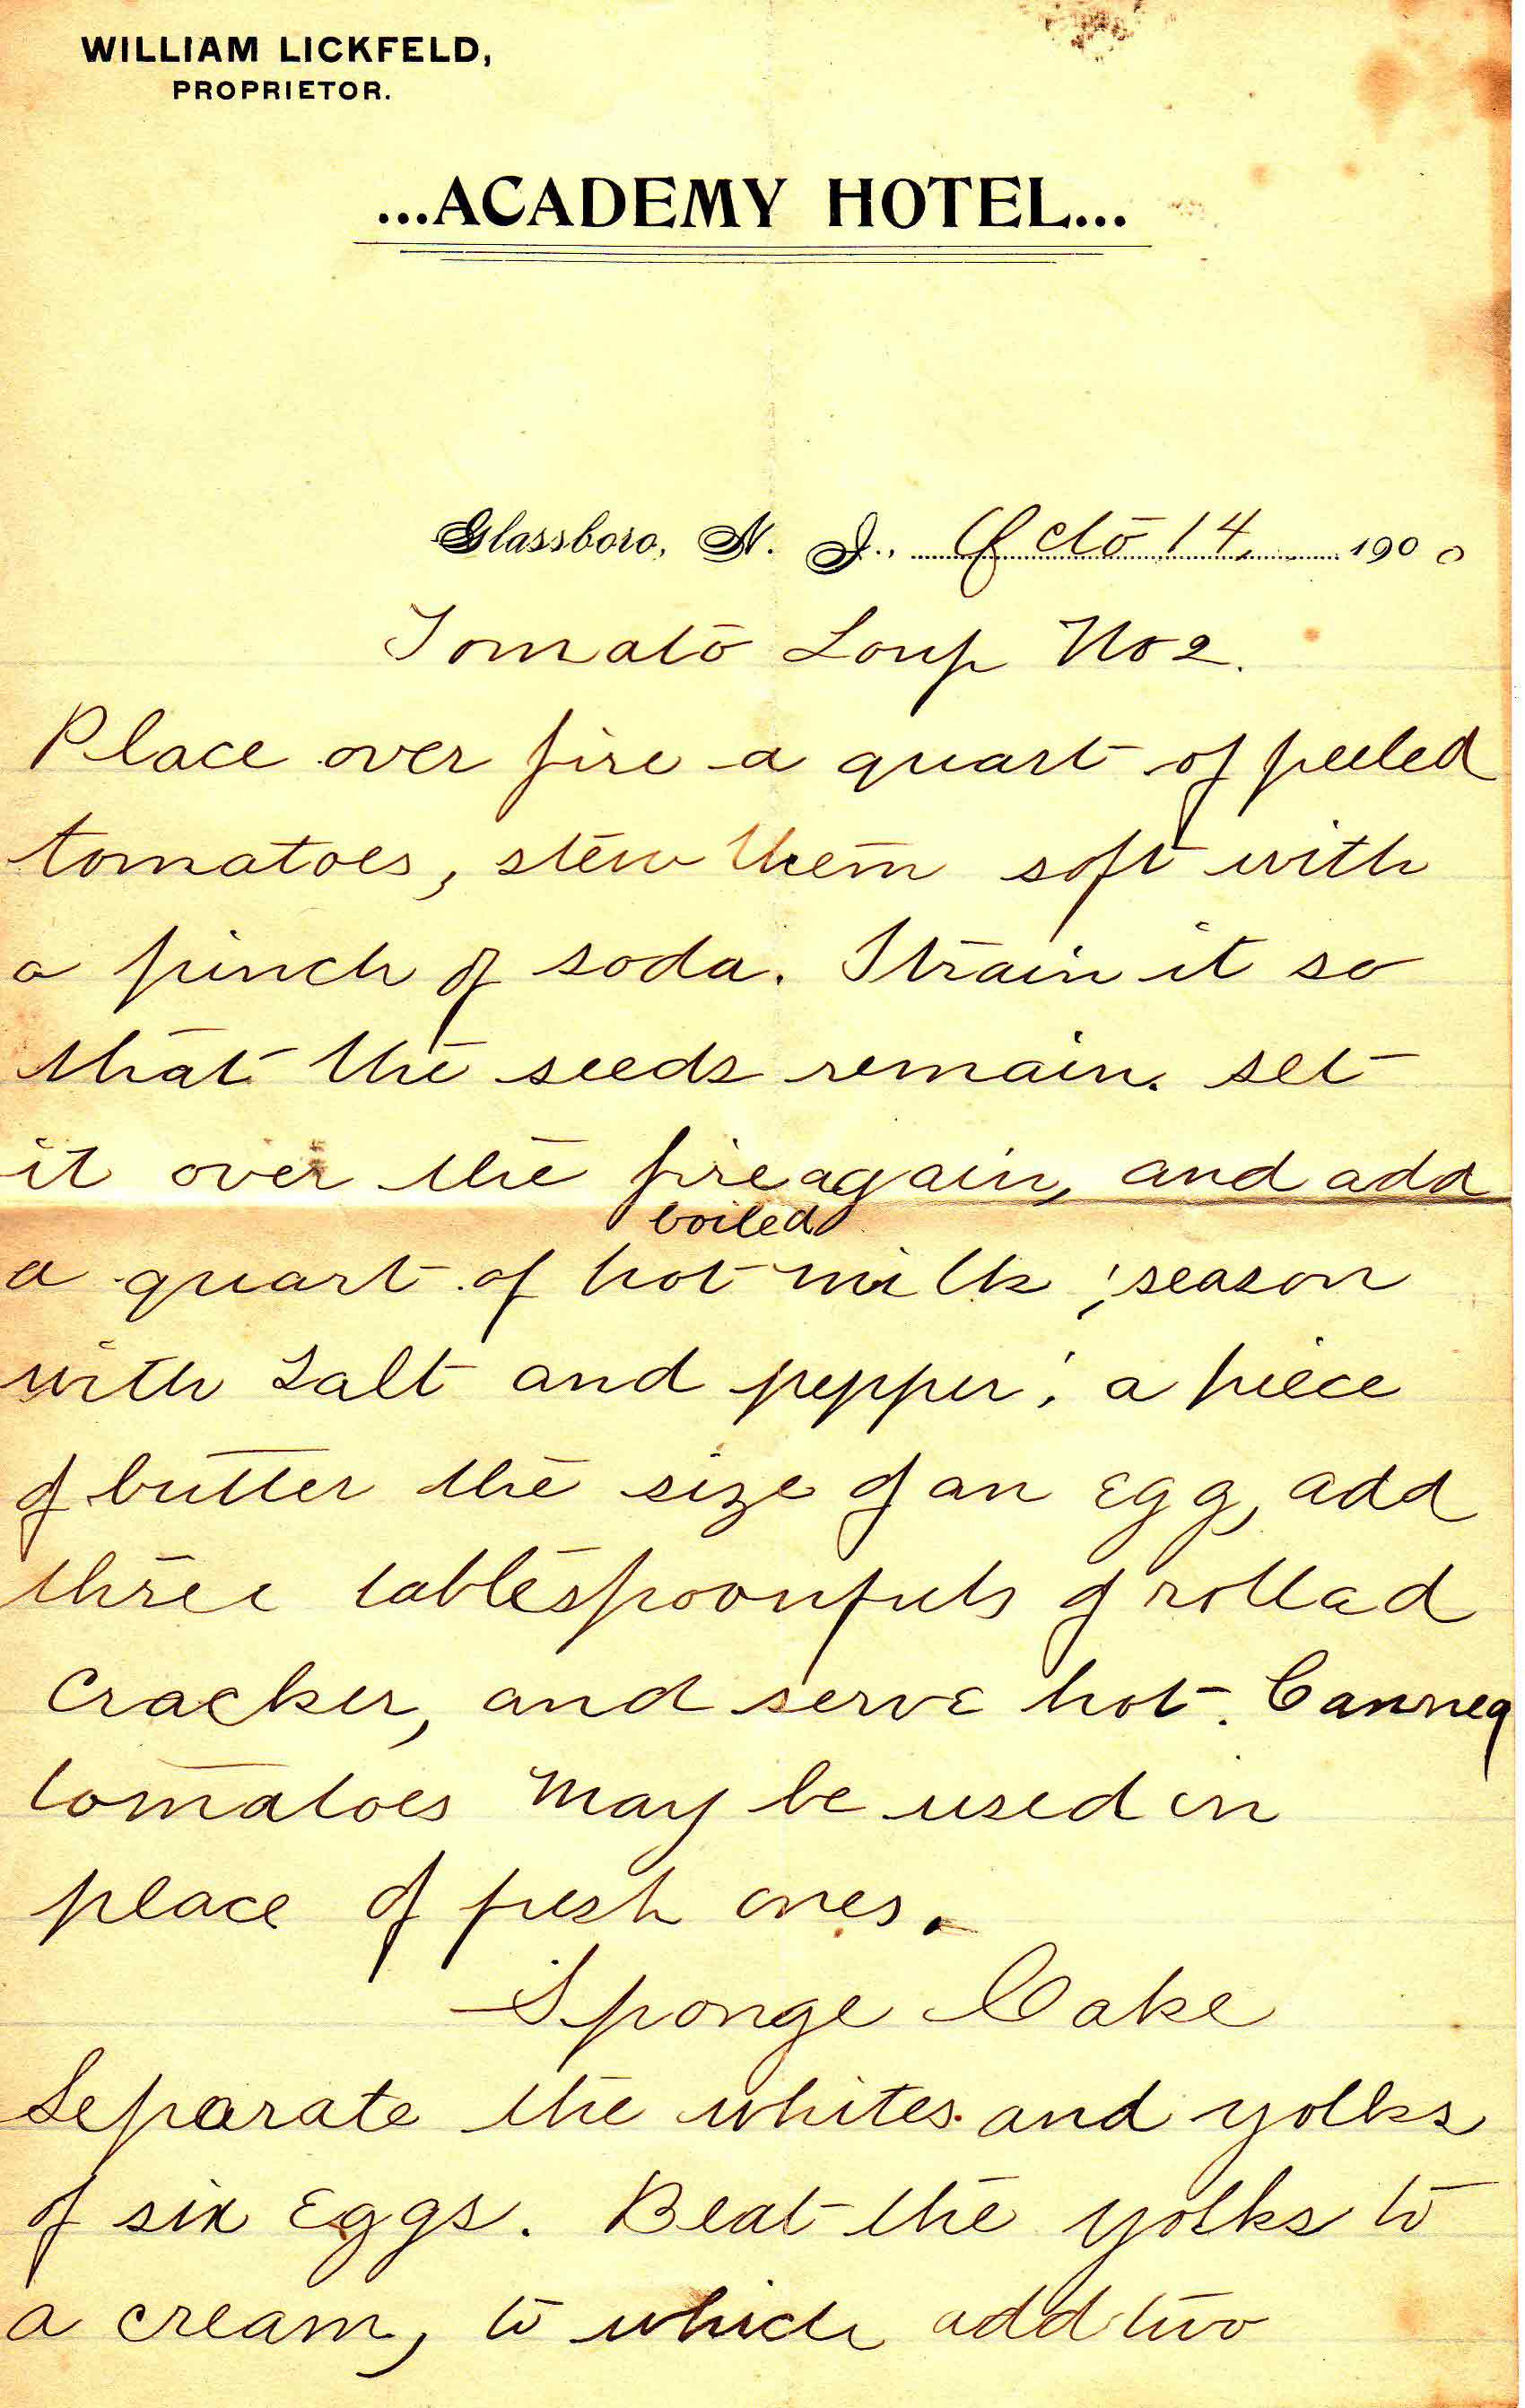 WILLIAM LICKFELD,
PROPRIETOR.
...ACADEMY HOTEL...
Glassboro, N. J., Octo 14, 1900
Tomato Soup No 2.
Place over fire a quart of peeled
tomatoes, stew them soft with
a pinch of soda. Strain it so
that the seeds remain. set
it over the fire again, and add
boiled
a quart of hot milk ; season
with Salt and pepper ; a piece
of butter the size of an Egg, add
three tablespoonfuls of rolled
Cracker, and serve hot. Canned
tomatoes may be used in
place of fresh ones.
Sponge Cake
Separate the whites and yolks
of six Eggs. Beat the yolks to
a cream, to which add two